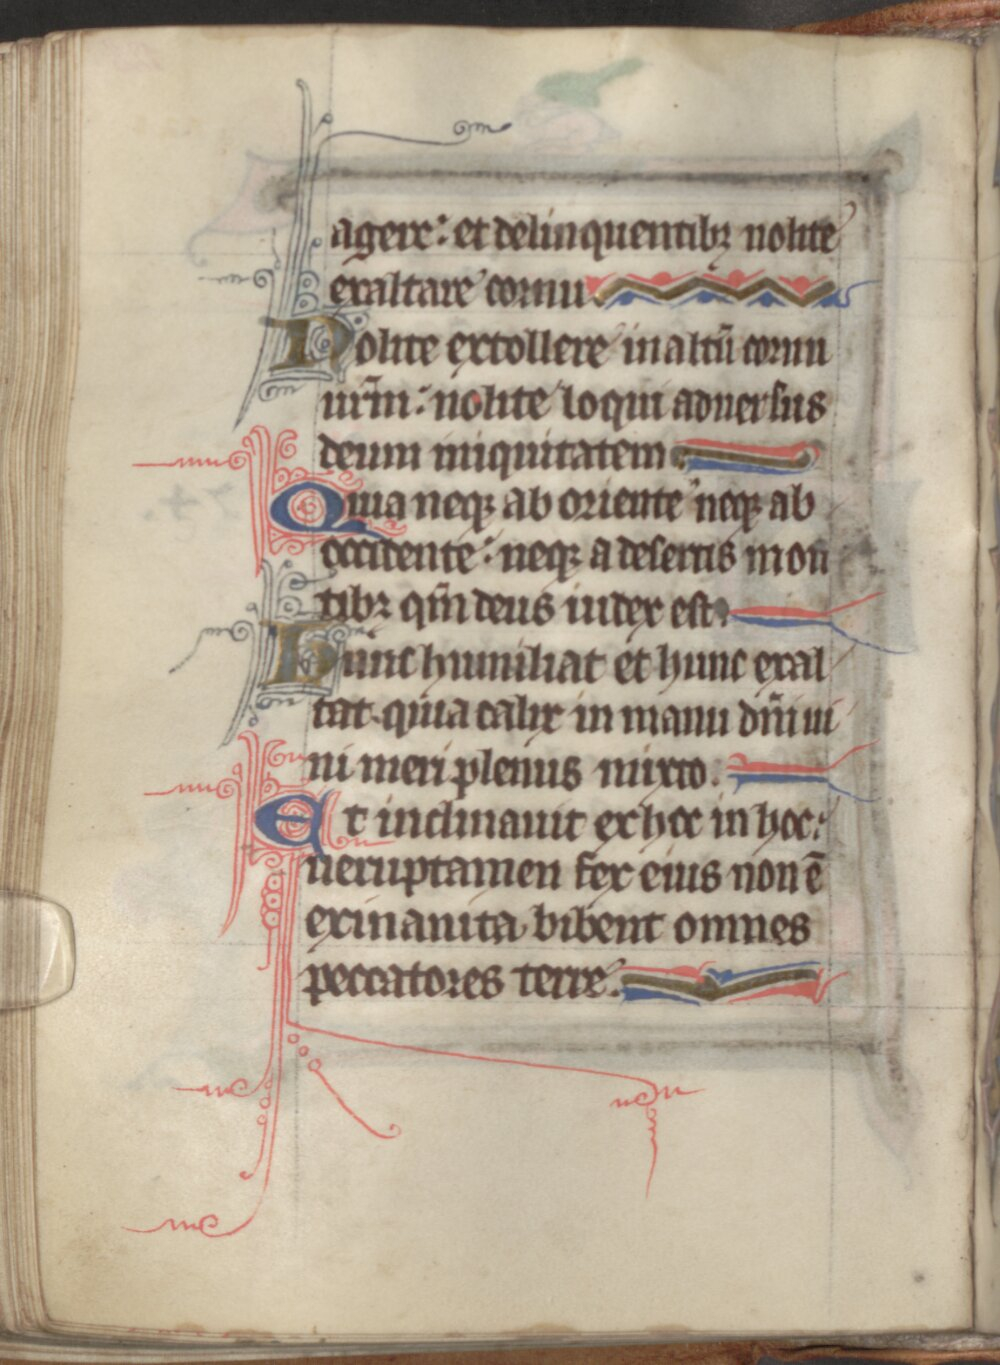 agere: et delinquentibꝫ nolite
exaltare cornu
Nolite extollere in altū cornu
ur̄m: nolite loqui aduersus
deum iniquitatem
Quia neqꝫ ab oriente neqꝫ ab
occidente: neqꝫ a desertis mon
tibꝫ qm̄ deus iudex est.
Hunc humiliat et hunc exal
tat quia calix in manu dn̄i ui
ni meri plenus mixto.
Et inclinauit ex hoc in hoc:
ueruptamen fex eius non ē
exinanita bibent omnes
peccatores terre.